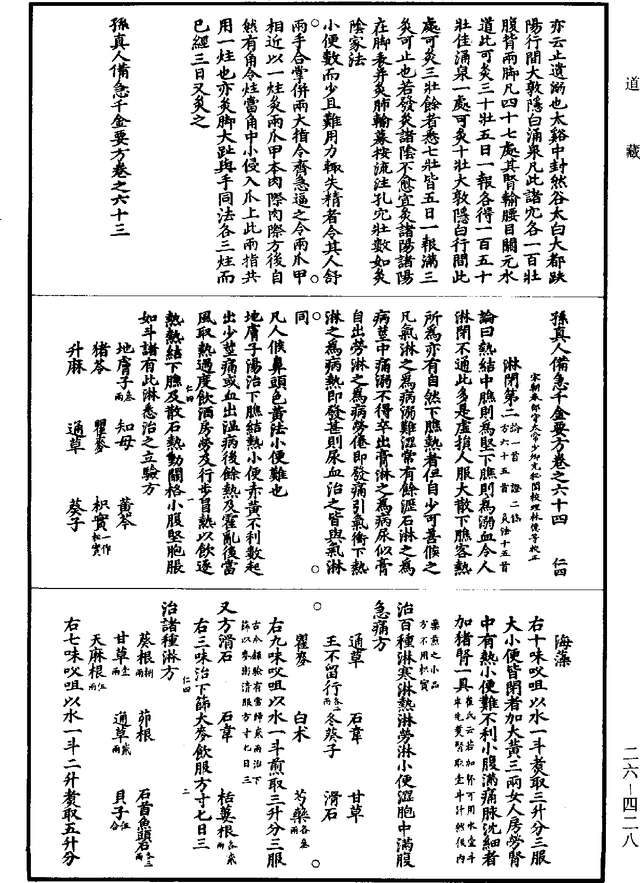 道藏
亦云止遺溺也太谿中封然谷太白大都趺
陽行間大敦隱白涌泉凡此諸穴各一百壯
腹背兩脚凡四十七處其腎輸腰目關元水
道此可灸三十壯五日一報各得一百五十
壯佳涌泉一處可灸十壯大敦隱白行間此
處可灸三壯餘者悉七壯皆五日一報滿三
灸可止也若發灸諸陰不愈宜灸諸陽諸陽
在脚表并灸肺輸募按流注孔穴壯數如灸
陰家法
小便數而少且難用力輒失精者令其人舒
兩手合掌併兩大指令齊急逼之令兩爪甲
相近以一炷灸兩爪甲本肉際肉際方後自
然有角令炷當角中小侵入爪上此兩指共
用一炷也亦灸脚大趾與手同法各三炷而
已經三日又灸之
孫真人備急千金要方卷之六十三
孫真人備急千金要方卷之六十四 仁四
宋朝奉郎守太常少卿充秘閣校理林億等校正
淋閉第二論一首 證二條 方六十五首 灸法十五首
論曰熱結中膲則為堅下膲則為溺血令人
淋閉不通此多是虛損人服大散下膲客熱
所為亦有自然下膲熱者但自少可善候之
凡氣淋之為病溺難澀常有餘瀝石淋之為
病莖中痛溺不得卒出膏淋之為病尿似膏
自出勞淋之為病勞倦即發痛引氣衝下熱
淋之為病熱即發甚則尿血治之皆與氣淋
同
凡人候鼻頭色黃法小便難也
地膚子湯治下膲結熱小便赤黃不利數起
出少莖痛或血出溫病後餘熱及霍亂後當
風取熱過度飲酒房勞及行步冒熱以飲逐
熱熱結下膲及散石熱動關格小腹堅胞脹
如斗諸有此淋悉治之立驗方
地膚子叁兩 知母 黃芩
猪苓 瞿麥 枳實一作松實
升麻 通草 葵子
海藻
右十味㕮咀以水一斗煑取三升分三服
大小便皆閉者加大黃三兩女人房勞腎
中有熱小便難不利小腹滿痛脉沈細者
加猪腎一具崔氏云若加腎可用水壹斗半先煑腎取壹斗汁然後內藥煎之小品方不用枳實
治百種淋寒淋熱淋勞淋小便澀胞中滿腹
急痛方
通草 石韋 甘草
王不留行各一兩 冬葵子 滑石
瞿麥 白术 芍藥各叁兩
右九味㕮咀以水一斗煎取三升分三服
古今錄驗有當歸貳兩治下篩以麥粥清服方寸匕日三
又方滑石 石韋 栝蔞根各叁兩
右三味治下篩大麥飲服方寸匕日三
治諸種淋方
葵根捌兩 茆根 石首魚頭石各三兩
甘草壹兩 通草貳兩 貝子伍合
天麻根伍兩
右七味㕮咀以水一斗二升煑取五升分
仁四 一
仁四 二
二六－四二八